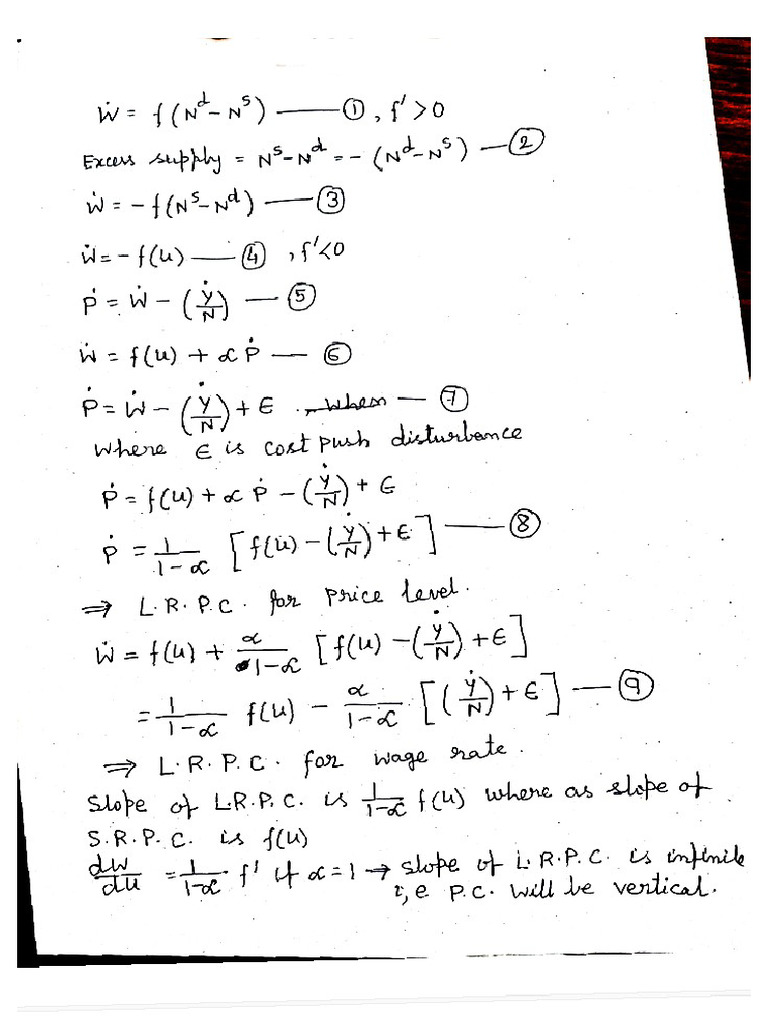 Ẇ = f(N^d - N^s) —— ① , f' > 0
Excess supply = N^s - N^d = - (N^d - N^s) — ②
Ẇ = - f(N^s - N^d) —— ③
Ẇ = - f(u) —— ④ , f' < 0
Ṗ = Ẇ - (Ẏ/N) — ⑤
Ẇ = f(u) + α Ṗ — ⑥
Ṗ = Ẇ - (Ẏ/N) + ε , when — ⑦
where ε is cost push disturbance
Ṗ = f(u) + α Ṗ - (Ẏ/N) + ε
Ṗ = 1/(1-α) [f(u) - (Ẏ/N) + ε] —— ⑧
⇒ L.R.P.C. for price level.
Ẇ = f(u) + α/(1-α) [f(u) - (Ẏ/N) + ε]
= 1/(1-α) f(u) - α/(1-α) [(Ẏ/N) + ε] — ⑨
⇒ L.R.P.C. for wage rate.
Slope of L.R.P.C. is 1/(1-α) f(u) where as slope of
S.R.P.C. is f(u)
dẇ/du = 1/(1-α) f' if α = 1 → slope of L.R.P.C. is infinite
i,e P.C. will be vertical.